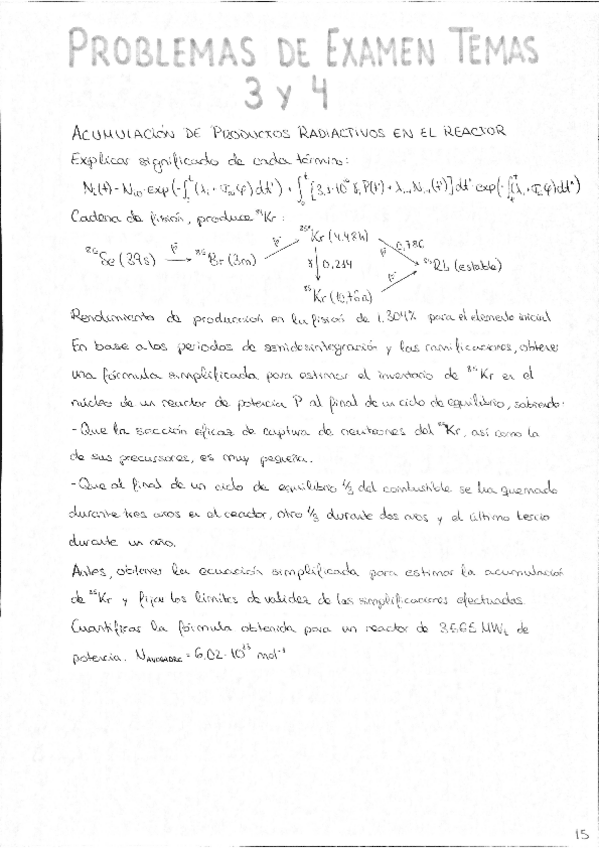 PROBLEMAS DE EXAMEN TEMAS
3 Y 4
ACUMULACIÓN DE PRODUCTOS RADIACTIVOS EN EL REACTOR
Explicar significado de cada término:
Cadena de fisión, produce ⁸⁵Kr:
⁸⁵Se (39s) → β⁻ ⁸⁵Br (3m) β⁻ ⁸⁵ᵐKr (4.48h) β⁻ 0,786
γ 0,214 ⁸⁵Rb (estable)
⁸⁵Kr (10,76a) β⁻
Rendimiento de producción en la fisión de 1.304% para el elemento inicial
En base a los periodos de semidesintegración y las ramificaciones, obtener
una fórmula simplificada para estimar el inventario de ⁸⁵Kr en el
núcleo de un reactor de potencia P al final de un ciclo de equilibrio, sabiendo:
- Que la sección eficaz de captura de neutrones del ⁸⁵Kr, así como la
de sus precursores, es muy pequeña.
- Que al final de un ciclo de equilibrio 1/3 del combustible se ha quemado
durante tres años en el reactor, otro 1/3 durante dos años y el último tercio
durante un año.
Antes, obtener la ecuación simplificada para estimar la acumulación
de ⁸⁵Kr y fijar los límites de validez de las simplificaciones efectuadas
Cuantificar la fórmula obtenida para un reactor de MWt de
potencia. N AVOGADRO = 6,02·10²³ mol⁻¹
15